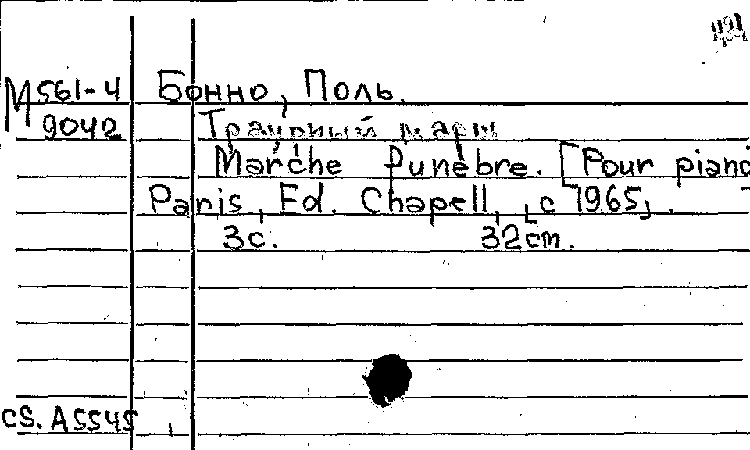 М 561-4 Бонно, Поль.
9042 Траурный марш
Marche funèbre. [Pour piano]
Paris, Ed. Chapell, [c 1965].
3с. 32cm.
CS. A5545